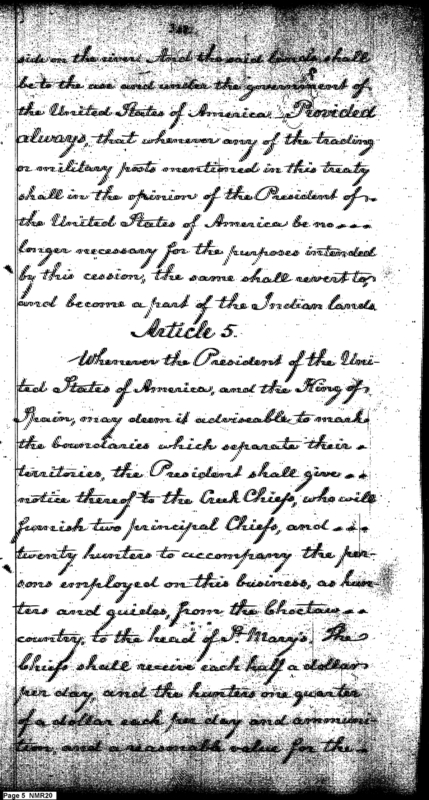 side on the river: And the said lands shall
be to the use and under the government of
the United States of America_ Provided
always, that whenever any of the trading
or military posts mentioned in this treaty
shall in the opinion of the President of
the United States of America be no
longer necessary for the purposes intended
by this cession, the same shall revert to
and become a part of the Indian lands.
Article 5.
Whenever the President of the Uni-
ted States of America, and the King of
Spain, may deem it adviseable to mark
the boundaries which separate their
territories, the President shall give
notice thereof to the Creek Chiefs, who will
furnish two principal Chiefs, and
twenty hunters to accompany the per-
sons employed on this business, as hun
ters and guides, from the Choctaw
country, to the head of St Mary's. The
Chiefs shall receive each half a dollar
per day, and the hunters one quarter
of a dollar each per day and ammuni-
tion, and a reasonable value for the
Page 5 NMR20